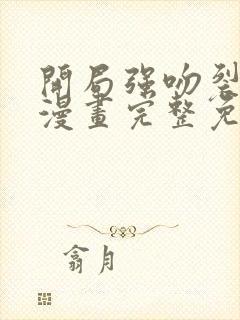 開局強吻裂
漫畫完整免
翕月